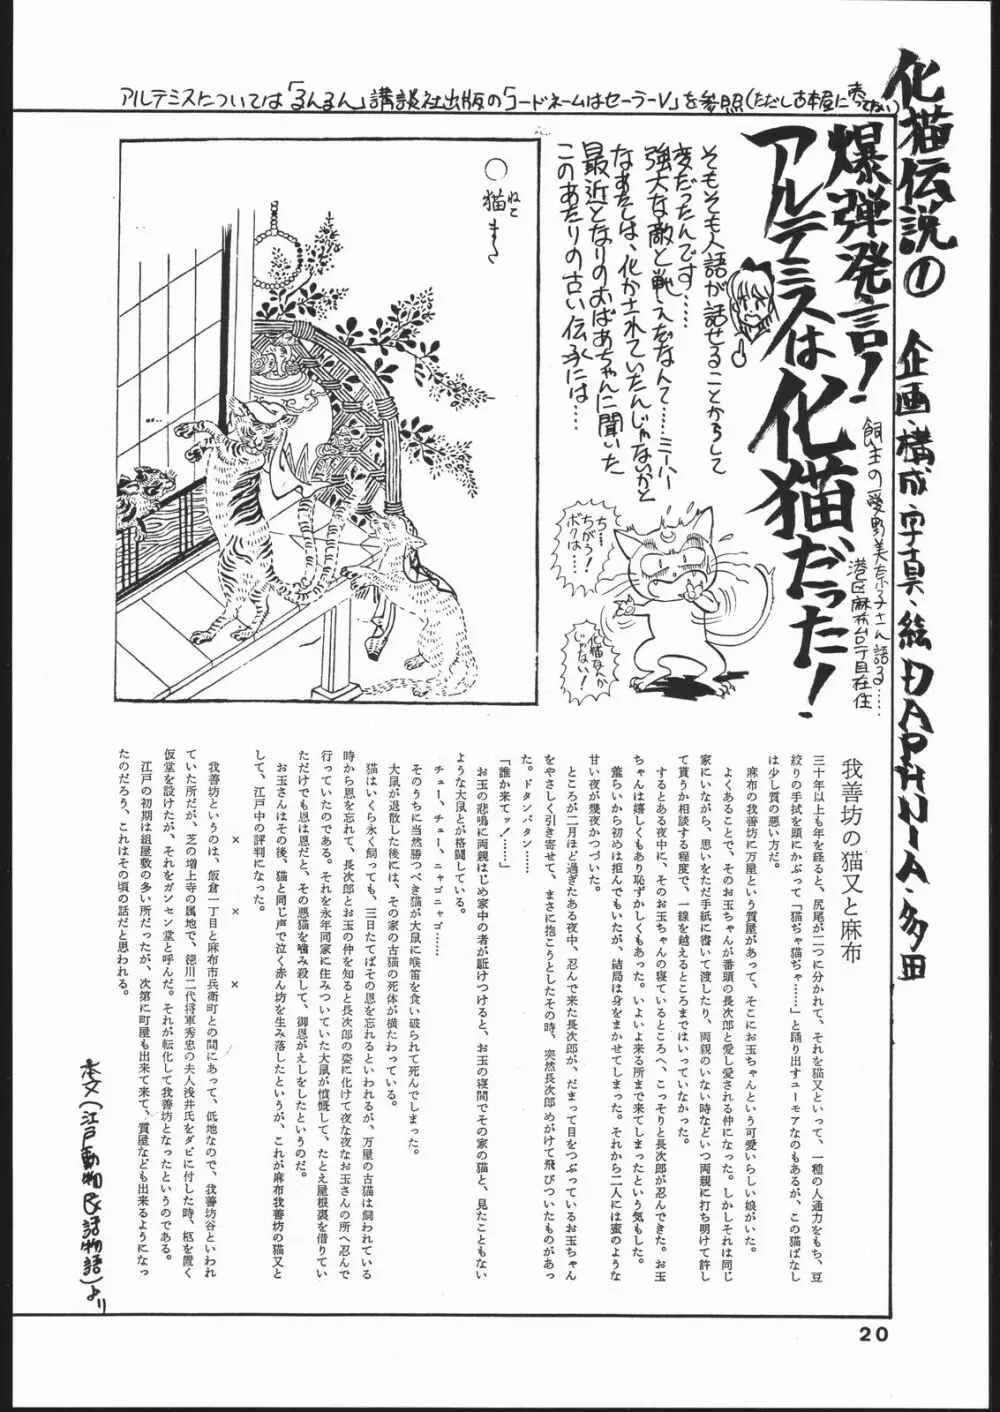 化猫伝説の 企画・構成・字真・絵 DAPHNIA・多田
アルテミスについては「るんるん」講談社出版の「コードネームはセーラーV」を参照(ただし古本屋に売ってない)
爆弾発言!
アルテミスは化猫だった!
飼主の愛野美奈子さん語る……
港区麻布台一丁目在住
そもそも人語が話せることからして
変だったんです……
強大な敵と戦えだなんて……ミーハー
なあたしは、化かされていたんじゃないかと
最近となりのおばあちゃんに聞いた
このあたりの古い伝承には…
ち……
ちがう!
ボクは…
化猫なんか
じゃない!
○猫また
ねこ
我善坊の猫又と麻布
三十年以上も年を経ると、尻尾が二つに分かれて、それを猫又といって、一種の人通力をもち、豆
絞りの手拭を頭にかぶって「猫ぢゃ猫ぢゃ……」と踊り出すユーモアなのもあるが、この猫ばなし
は少し質の悪い方だ。
麻布の我善坊に万屋という質屋があって、そこにお玉ちゃんという可愛いらしい娘がいた。
よくあることで、そのお玉ちゃんが番頭の長次郎と愛し愛される仲になった。しかしそれは同じ
家にいながら、思いをただ手紙に書いて渡したり、両親のいない時などいつ両親に打ち明けて許し
て貰うか相談する程度で、一線を越えるところまではいっていなかった。
するとある夜中に、そのお玉ちゃんの寝ているところへ、こっそりと長次郎が忍んできた。お玉
ちゃんは嬉しくもあり恥ずかしくもあった。いよいよ来る所まで来てしまったという気もした。
羞らいから初めは拒んでもいたが、結局は身をまかせてしまった。それから二人には蜜のような
甘い夜が幾夜かつづいた。
ところが二月ほど過ぎたある夜中、忍んで来た長次郎が、だまって目をつぶっているお玉ちゃん
をやさしく引き寄せて、まさに抱こうとしたその時、突然長次郎めがけて飛びついたものがあっ
た。ドタンバタン……
「誰か来てッ!……」
お玉の悲鳴に両親はじめ家中の者が駈けつけると、お玉の寝間でその家の猫と、見たこともない
ような大鼠とが格闘している。
チュー、チュー、ニャゴニャゴ……
そのうちに当然勝つべき猫が大鼠に喉笛を食い破られて死んでしまった。
大鼠が退散した後には、その家の古猫の死体が横たわっている。
猫はいくら永く飼っても、三日たてばその恩を忘れるといわれるが、万屋の古猫は飼われている
時から恩を忘れて、長次郎とお玉の仲を知ると長次郎の姿に化けて夜な夜なお玉さんの所へ忍んで
行っていたのである。それを永年同家に住みついていた大鼠が憤慨して、たとえ屋根裏を借りてい
ただけでも恩は恩だと、その悪猫を噛み殺して、御恩がえしをしたというのだ。
お玉さんはその後、猫と同じ声で泣く赤ん坊を生み落したというが、これが麻布我善坊の猫又と
して、江戸中の評判になった。
× × ×
我善坊というのは、飯倉一丁目と麻布市兵衛町との間にあって、低地なので、我善坊谷といわれ
ていた所だが、芝の増上寺の属地で、徳川二代将軍秀忠の夫人浅井氏をダビに付した時、柩を置く
仮堂を設けたが、それをガンセン堂と呼んだ。それが転化して我善坊となったというのである。
江戸の初期は組屋敷の多い所だったが、次第に町屋も出来て来て、質屋なども出来るようになっ
たのだろう、これはその頃の話だと思われる。
本文(江戸動物民話物語)より
20